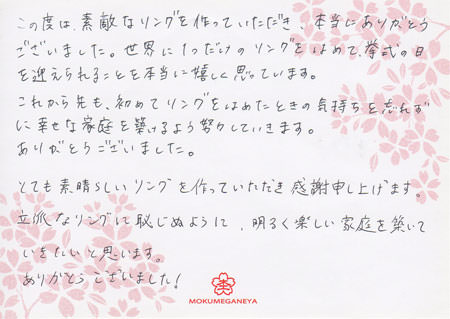 この度は、素敵なリングを作っていただき、本当にありがとう
ございました。世界に1つだけのリングをはめて、挙式の日
を迎えられることを本当に嬉しく思っています。
これから先も、初めてリングをはめたときの気持ちを忘れず
に幸せな家庭を築けるよう努力していきます。
ありがとうございました。
とても素晴らしいリングを作っていただき感謝申し上げます。
立派なリングに恥じぬように、明るく楽しい家庭を築いて
いきたいと思います。
ありがとうございました!
MOKUMEGANEYA